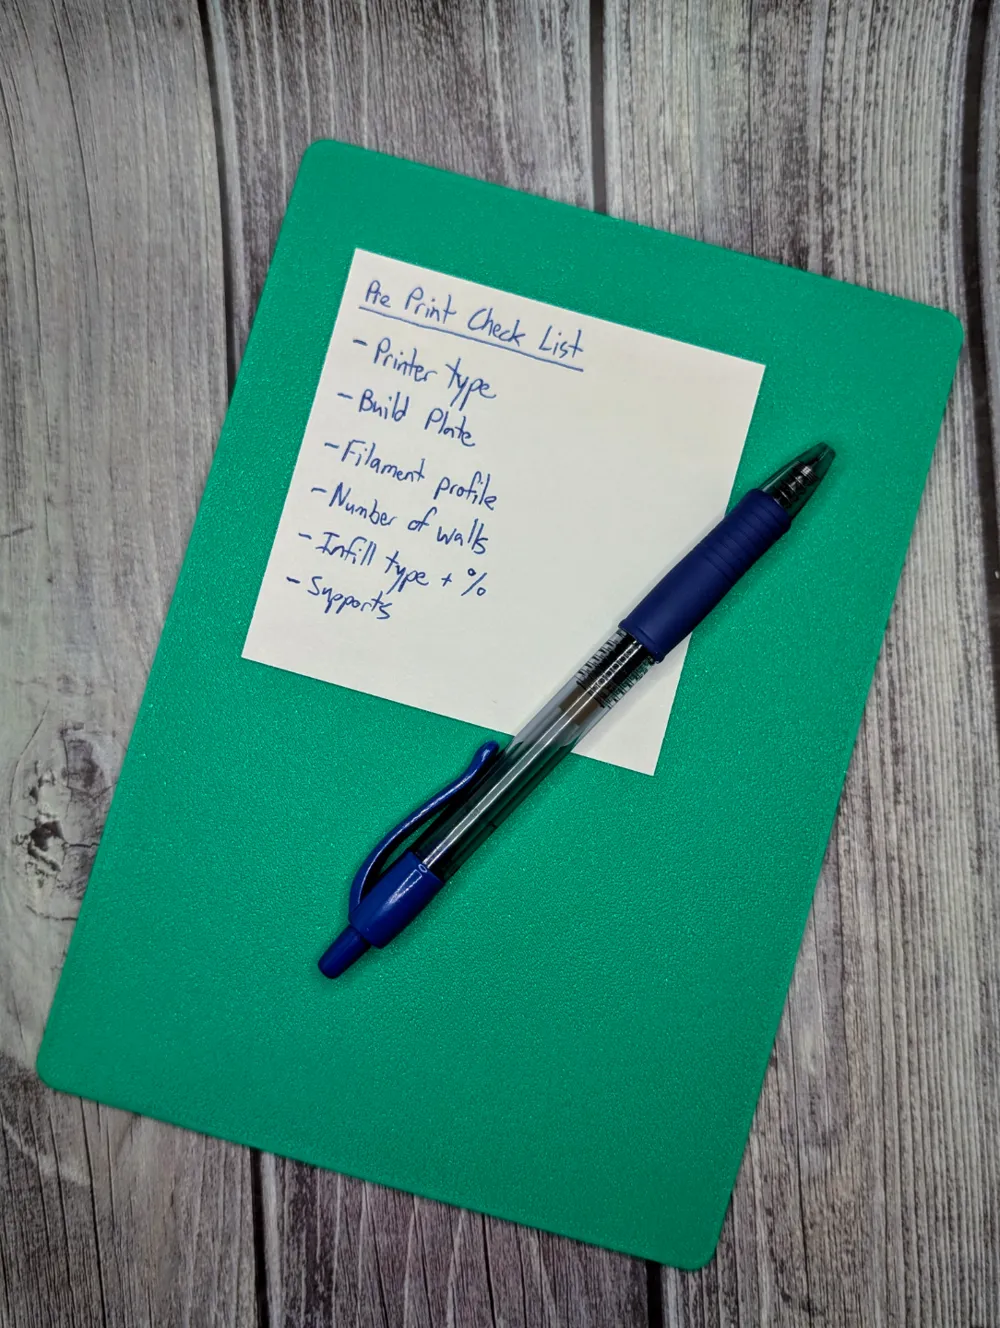 Pre Print Check List
- Printer type
- Build Plate
- Filament profile
- Number of walls
- Infill type + %
- Supports